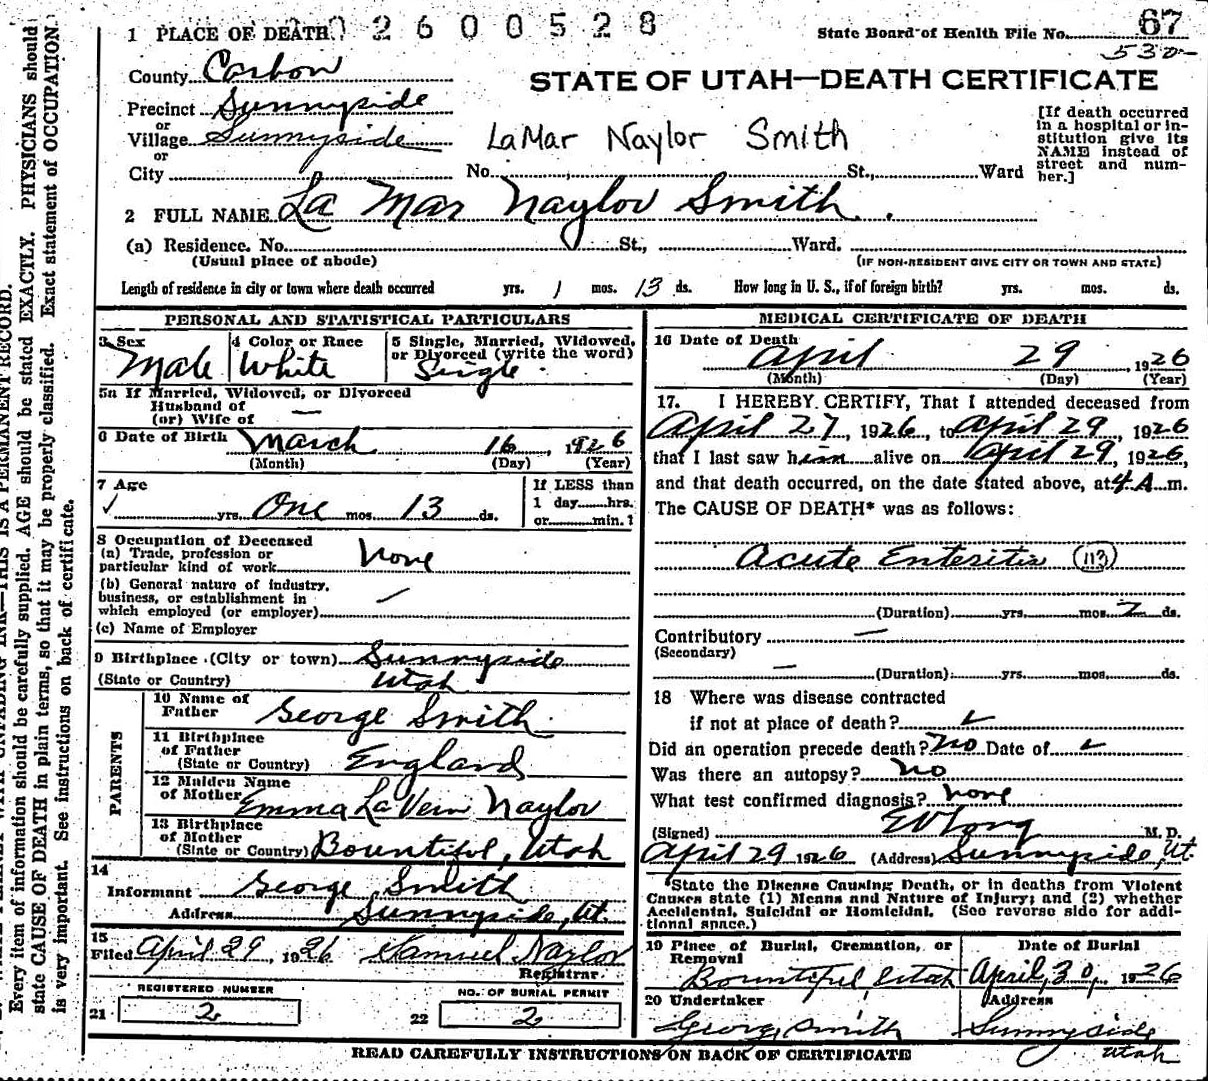 2600528
67
State Board of Health File No.
530-
1 PLACE OF DEATH
County Carbon
STATE OF UTAH—DEATH CERTIFICATE
Precinct Sunnyside
or
Village Sunnyside
LaMar Naylor Smith
[If death occurred
in a hospital or in-
stitution give its
NAME instead of
street and num-
ber.]
or
City No. St., Ward
2 FULL NAME La Mar Naylor Smith
(a) Residence. No. St., Ward.
(Usual place of abode) (IF NON-RESIDENT GIVE CITY OR TOWN AND STATE)
Length of residence in city or town where death occurred yrs. 1 mos. 13 ds. How long in U. S., if of foreign birth? yrs. mos. ds.
PERSONAL AND STATISTICAL PARTICULARS
3 Sex
Male
4 Color or Race
White
5 Single, Married, Widowed,
or Divorced (write the word)
Single
5a If Married, Widowed, or Divorced
Husband of
(or) Wife of —
6 Date of Birth March 16, 1926
(Month) (Day) (Year)
7 Age
yrs. One mos. 13 ds.
If LESS than
1 day hrs.
or min.?
8 Occupation of Deceased
(a) Trade, profession or
particular kind of work None
(b) General nature of industry,
business, or establishment in
which employed (or employer)
(c) Name of Employer
9 Birthplace (City or town) Sunnyside
(State or Country) Utah
PARENTS
10 Name of
Father George Smith
11 Birthplace
of Father
(State or Country) England
12 Maiden Name
of Mother Emma La Vern Naylor
13 Birthplace
of Mother
(State or Country) Bountiful, Utah
14
Informant George Smith
Address Sunnyside, Ut.
15
Filed April 29, 1926 Samuel Naylor
Registrar.
REGISTERED NUMBER
21 2
NO. OF BURIAL PERMIT
22 2
MEDICAL CERTIFICATE OF DEATH
16 Date of Death
April 29, 1926
(Month) (Day) (Year)
17. I HEREBY CERTIFY, That I attended deceased from
April 27, 1926, to April 29, 1926
that I last saw him alive on April 29, 1926,
and that death occurred, on the date stated above, at 4 A. m.
The CAUSE OF DEATH* was as follows:
Acute Enteritis (113)
(Duration) yrs. mos. 2 ds.
Contributory —
(Secondary)
— (Duration) yrs. mos. ds.
18 Where was disease contracted
if not at place of death?
Did an operation precede death? No Date of
Was there an autopsy? No
What test confirmed diagnosis? None
(Signed) M. D.
April 29 1926 (Address) Sunnyside, Ut.
*State the Disease Causing Death, or in deaths from Violent
Causes state (1) Means and Nature of Injury; and (2) whether
Accidental, Suicidal or Homicidal. (See reverse side for addi-
tional space.)
19 Place of Burial, Cremation, or
Removal
Bountiful, Utah
Date of Burial
April, 30, 1926
20 Undertaker
George Smith
Address
Sunnyside
Utah
READ CAREFULLY INSTRUCTIONS ON BACK OF CERTIFICATE
THIS IS A PERMANENT RECORD.
Every item of information should be carefully supplied. AGE should be stated EXACTLY. PHYSICIANS should
state CAUSE OF DEATH in plain terms, so that it may be properly classified. Exact statement of OCCUPATION
is very important. See instructions on back of certificate.